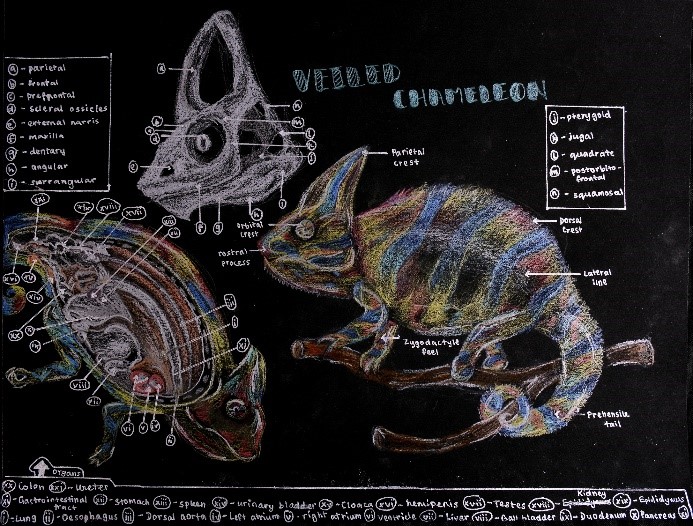 VEILED
CHAMELEON
a - parietal
b - frontal
c - prefrontal
d - scleral ossicles
e - external narris
f - maxilla
g - dentary
h - angular
i - surrangular
j - pterygoid
k - jugal
l - quadrate
m - postorbito-
frontal
n - squamosal
Parietal
crest
orbital
crest
rostral
process
dorsal
crest
Lateral
line
Zygodactyle
feel
Prehensile
tail
organs
xx Colon xxi - ureter
Kidney
Gastrointestinal
tract
xii - stomach xiii - spleen xiv - urinary bladder xv - Cloaca xvi - hemipenis xvii - Testes xviii - Epididymus xix - Epididymus
i - Lung ii - Oesophagus iii - Dorsal aorta iv - Left atrium v - right atrium vi ventricle vii - Liver viii - Gall bladder ix - Duodenum x Pancreas